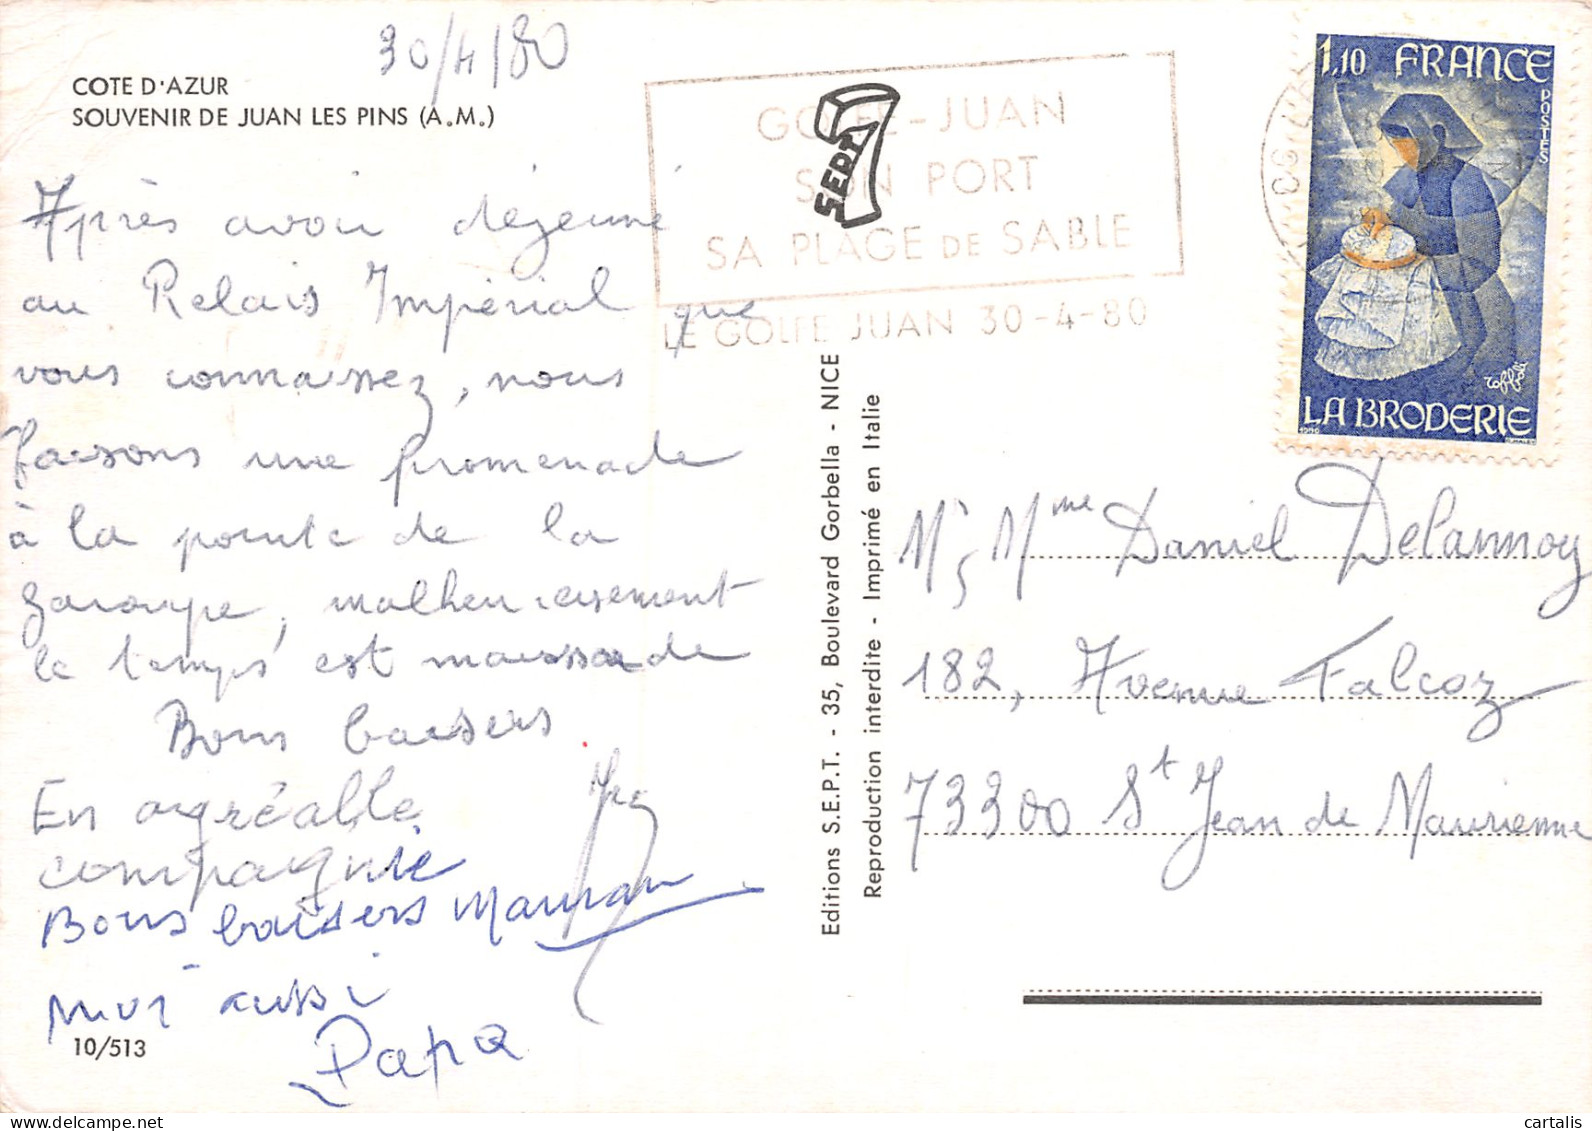 30/4/80
COTE D'AZUR
SOUVENIR DE JUAN LES PINS (A.M.)
Après avoir déjeuné
au Relais Impérial que
vous connaissez, nous
faisons une promenade
à la pointe de la
Garoupe, malheureusement
le temps est maussade
Bons baisers
En agréable
compagnie
Bons baisers Maman
aussi
Papa
10/513
GOLFE-JUAN
SON PORT
SA PLAGE DE SABLE
LE GOLFE JUAN 30-4-80
SEPT
Editions S.E.P.T. - 35, Boulevard Gorbella - NICE
Reproduction interdite - Imprimé en Italie
1,10 FRANCE
POSTES
LA BRODERIE
1980
Mr, Mme Daniel Delannoy
182, Avenue Falcoz
73300 St Jean de Maurienne
cartalis